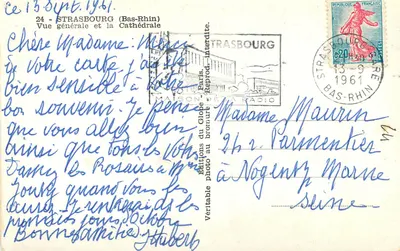 ce 13 Sept. 1961.
24 - STRASBOURG (Bas-Rhin)
Vue générale et la Cathédrale
Chère Madame. Merci
de votre carte, j'ai été
bien sensible à votre
bon souvenir. Je pense
que vous allez bien,
ainsi que tous les vôtres
Dames les Rosiers à Mme
quand vous les
aurez. Je rentrerai les
premiers jours d'Octobre
Bonne amitié
Editions du Globe - Paris.
Véritable photo au bromure - Reprod. interdite.
STRASBOURG
RADIO
STRASBOURG GARE
13-9
1961
BAS-RHIN
0,20
Madame Maurin
24 r. Parmentier
à
Nogent s/ Marne
Seine